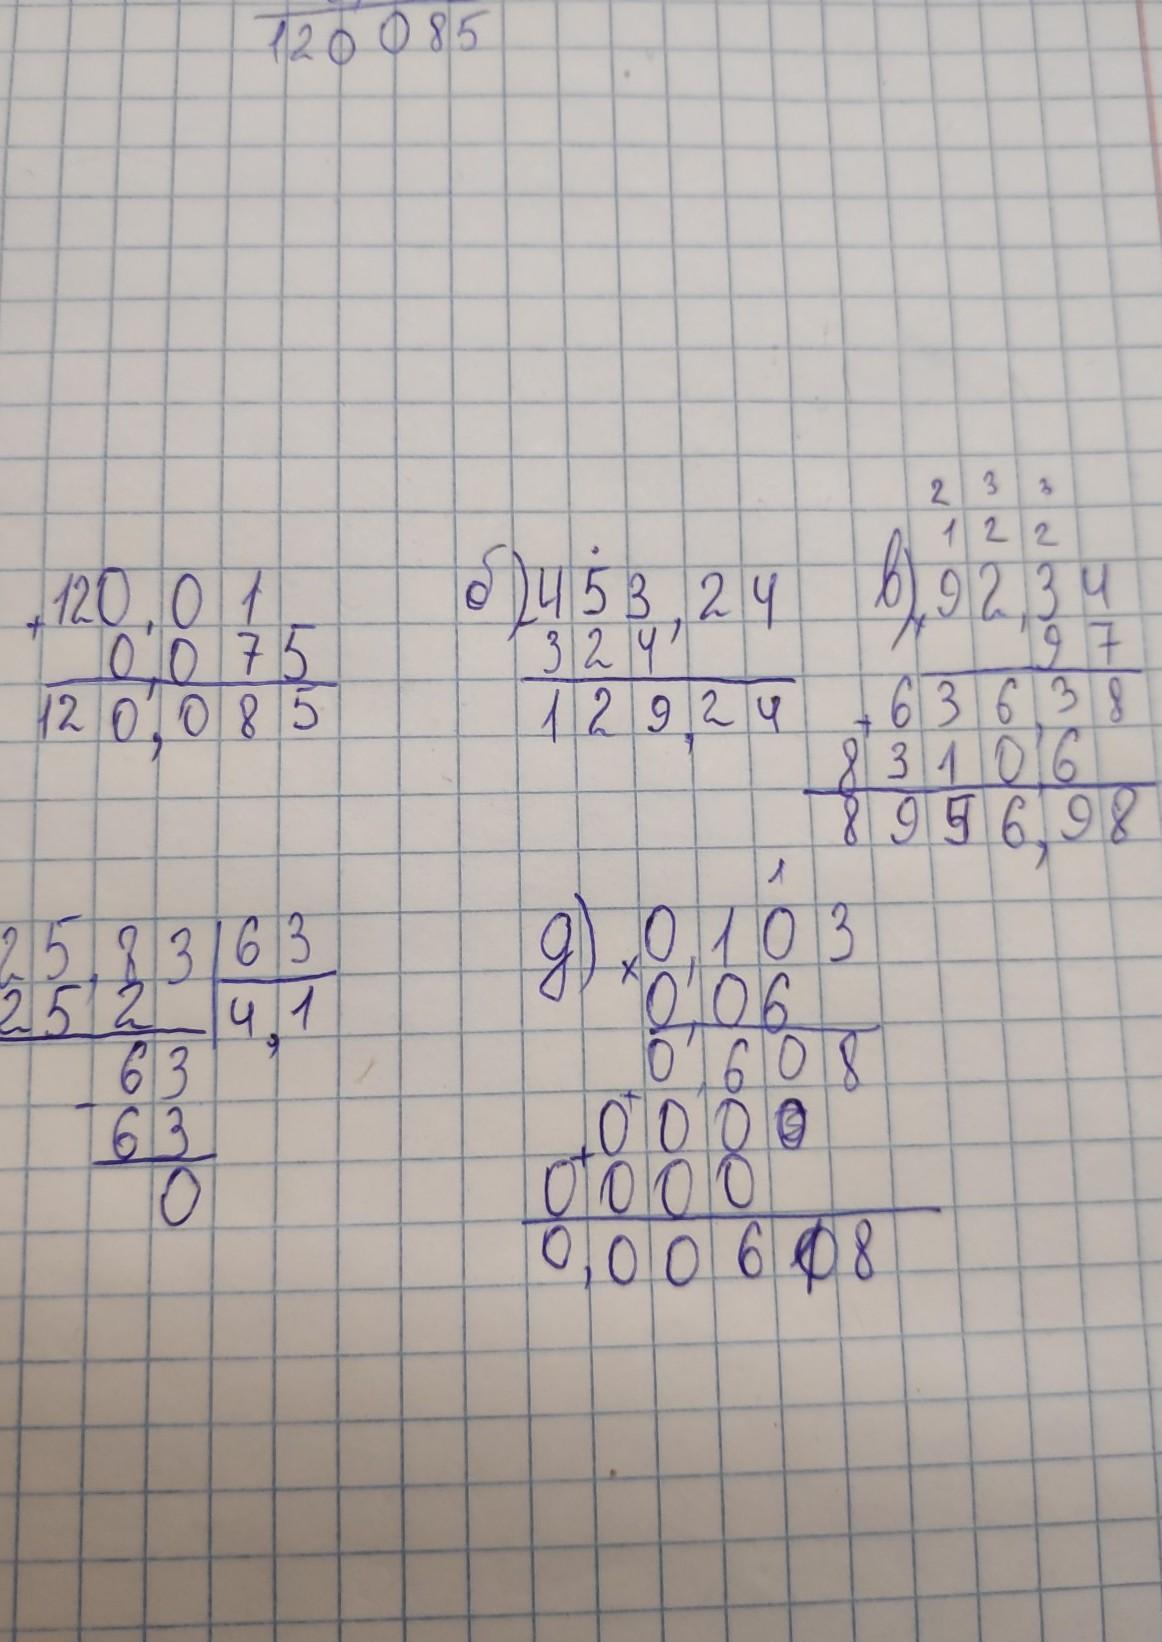 120 085
+120,01
0,075
120,085
б) 453,24
324,
129,24
2 3 3
1 2 2
в) 92,34
97
+636,38
83106
8956,98
25,83 63
252 4,1
-63
63
0
1
д) ×0,103
0,06
0,608
+0000
+0000
0,00608